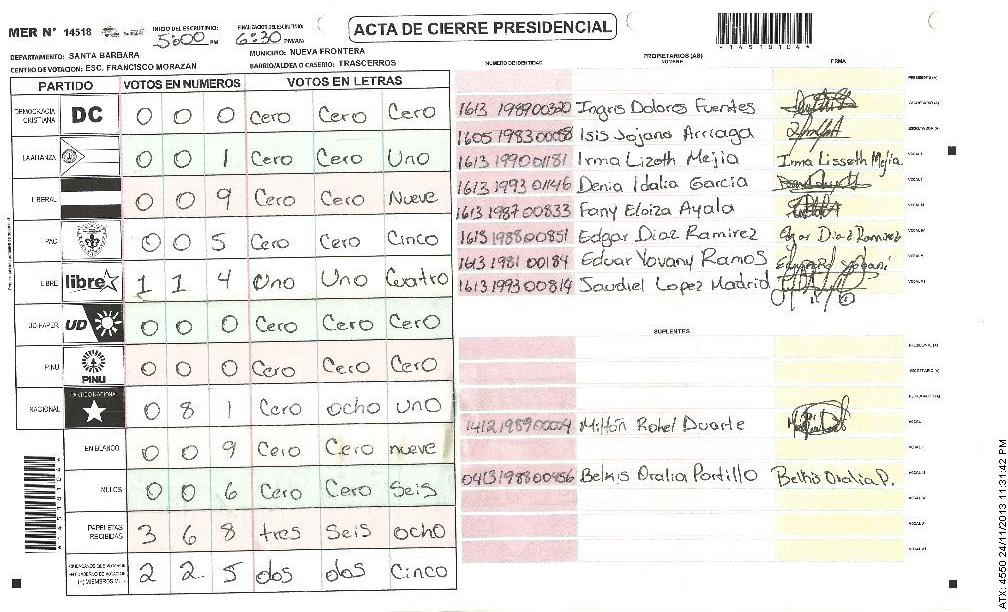 MER N° 14518
INICIO DEL ESCRUTINIO: 5:00 PM
FINALIZACION DEL ESCRUTINIO: 6:30 PM/AM
ACTA DE CIERRE PRESIDENCIAL
*14518104*
DEPARTAMENTO: SANTA BARBARA
MUNICIPIO: NUEVA FRONTERA
CENTRO DE VOTACION: ESC. FRANCISCO MORAZAN
BARRIO/ALDEA O CASERIO: TRASCERROS
PARTIDO VOTOS EN NUMEROS VOTOS EN LETRAS
DEMOCRACIA CRISTIANA DC 0 0 0 Cero Cero Cero
LA ALIANZA 0 0 1 Cero Cero Uno
LIBERAL 0 0 9 Cero Cero Nueve
PAC 0 0 5 Cero Cero Cinco
LIBRE libre 1 1 4 Uno Uno Cuatro
UD-FAPER UD 0 0 0 Cero Cero Cero
PINU PINU 0 0 0 Cero Cero Cero
NACIONAL PARTIDO NACIONAL 0 8 1 Cero ocho uno
EN BLANCO 0 0 9 Cero Cero nueve
NULOS 0 0 6 Cero Cero Seis
PAPELETAS RECIBIDAS 3 6 8 tres Seis ocho
2 2 5 dos dos Cinco
PROPIETARIOS (AS)
NUMERO DE IDENTIDAD NOMBRE FIRMA
PRESIDENTE (A)
1613 1989 00320 Ingris Dolores Fuentes SECRETARIO (A)
1605 1983 00058 Isis Jojana Arriaga ESCRUTADOR (A)
1613 1990 01181 Irma Lizoth Mejia Irma Lisseth Mejia. VOCAL I
1613 1993 01146 Denia Idalia Garcia
1613 1987 00833 Fany Eloiza Ayala
1613 1988 00851 Edgar Diaz Ramirez Edgar Diaz Ramirez
1613 1981 00184 Eduar Yovany Ramos
1613 1993 00814 Saudiel Lopez Madrid
SUPLENTES
PRESIDENTE (A)
SECRETARIO (A)
ESCRUTADOR (A)
1412 1989 00004 Milton Rohel Duarte
0413 1988 00456 Belkis Oralia Portillo Belkis Oralia P.
ATX: 4550 24/11/2013 11:31:42 PM